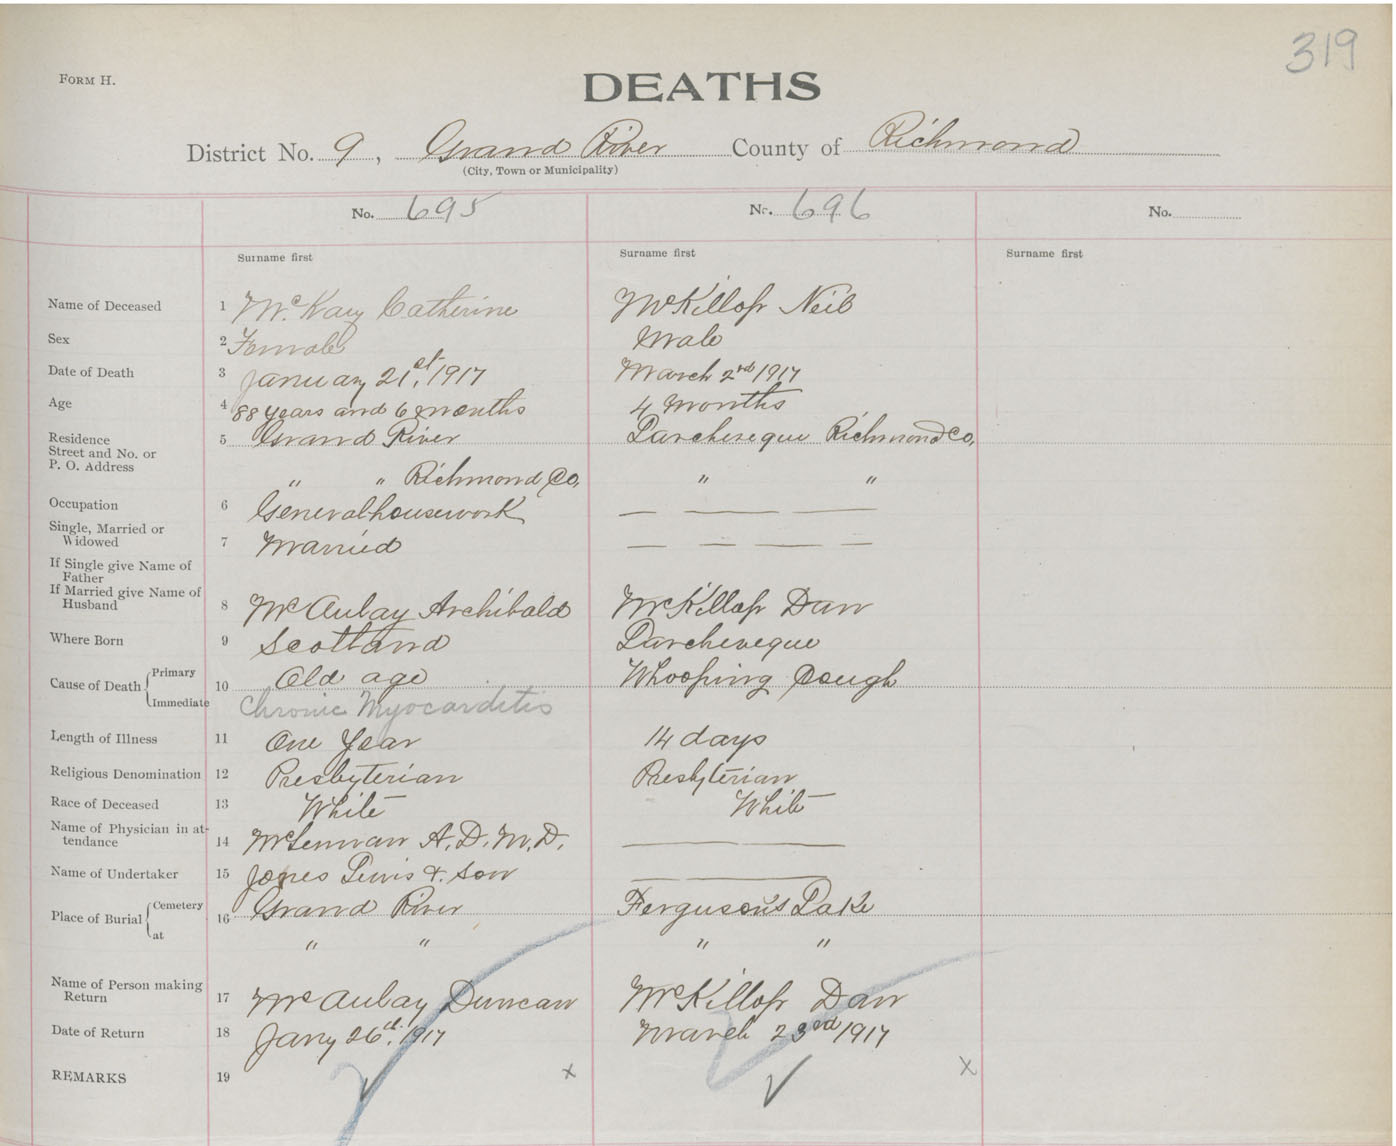 319
FORM H.
DEATHS
District No. 9, Grand River County of Richmond
(City, Town or Municipality)
No. 695 No. 696 No.
Surname first Surname first Surname first
Name of Deceased 1 McKay Catherine McKillop Neil
Sex 2 Female Male
Date of Death 3 January 21st, 1917 March 2nd 1917
Age 4 88 years and 6 months 4 Months
Residence 5 Grand River Larcheveque Richmond Co,
Street and No. or
P. O. Address
" " Richmond Co, " "
Occupation 6 Generalhousework — — —
Single, Married or
Widowed 7 Married — — — —
If Single give Name of
Father
If Married give Name of
Husband 8 McAulay Archibald McKillop Dan
Where Born 9 Scotland Larcheveque
Cause of Death Primary 10 Old age Whooping Cough
Immediate Chronic Myocarditis
Length of Illness 11 One Year 14 days
Religious Denomination 12 Presbyterian Presbyterian
Race of Deceased 13 White White
Name of Physician in at-
tendance 14 McLennan A. D. M. D. — —
Name of Undertaker 15 Jones Lewis & Son — —
Place of Burial Cemetery 16 Grand River Ferguson's Lake
at " " " "
Name of Person making
Return 17 McAulay Duncan McKillop Dan
Date of Return 18 Jany 26th, 1917 March 23rd 1917
REMARKS 19 x x